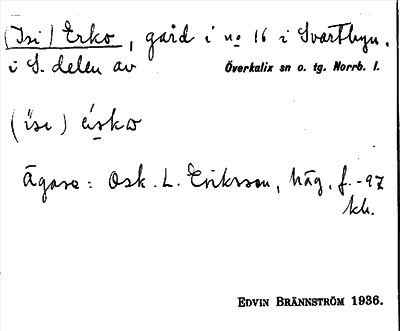 (Isi) Erko, gård i no 16 i Svartbyn,
i S. delen av Överkalix sn o. tg. Norrb. l.
(isi) ärko
Ägare: Osk. L. Eriksson, häg, f. -97
kh.
EDVIN BRÄNNSTRÖM 1936.